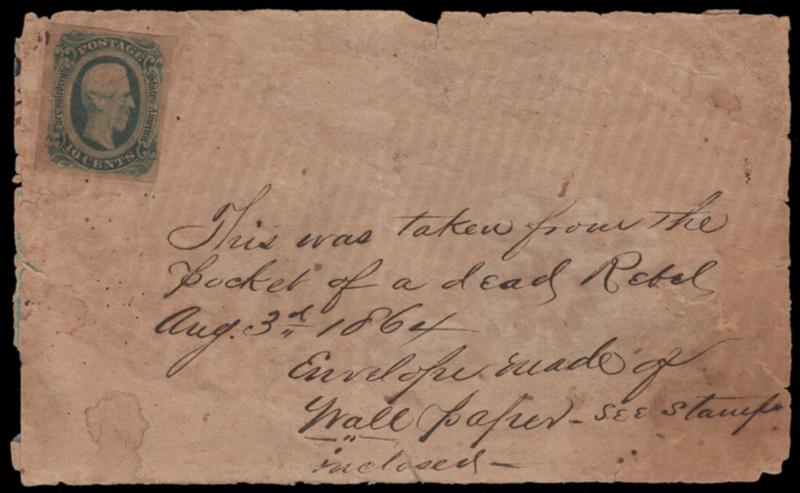 POSTAGE
The Confederate States of America
10 CENTS
This was taken from the
Pocket of a dead Rebel
Aug. 3rd 1864
Envelope made of
Wall paper - see stamp
inclosed -